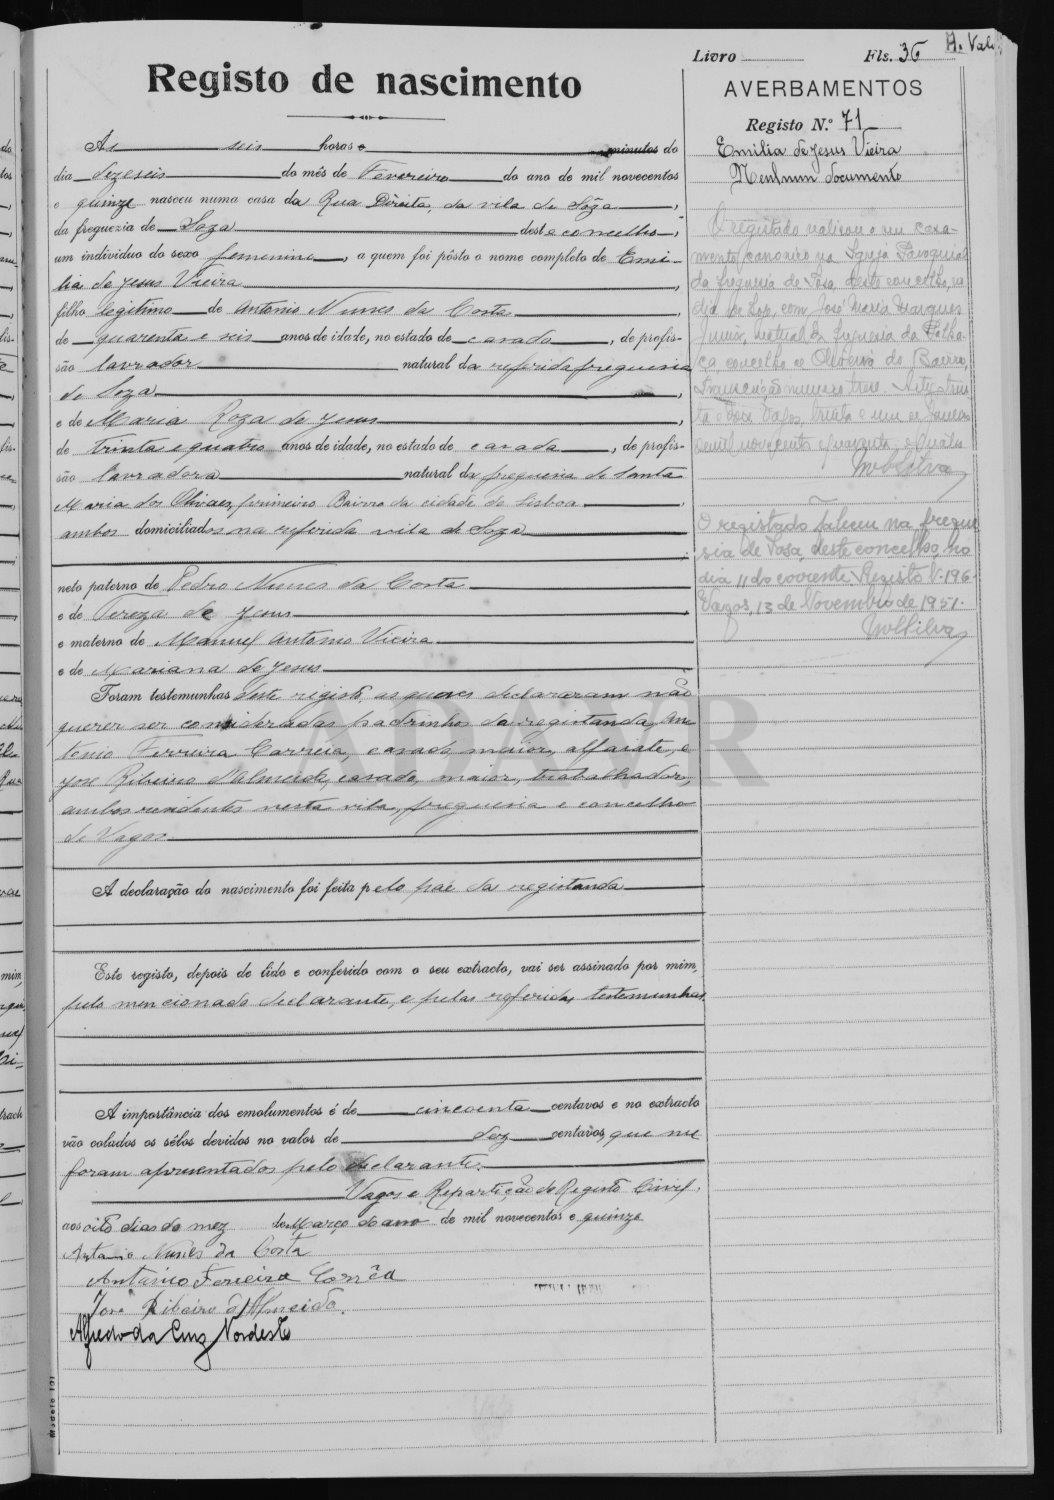 Livro Fls. 36
Registo de nascimento
As seis horas e minutos do
dia dezeseis do mês de Fevereiro do ano de mil novecentos
e quinze nasceu numa casa da Rua Direita, da vila de Sôza,
da freguezia de Soza deste concelho,
um individuo do sexo femenino, a quem foi pôsto o nome completo de Emi-
lia de Jesus Vieira,
filho legitimo de Antonio Nunes da Costa,
de quarenta e seis anos de idade, no estado de casado, de profis-
são lavrador natural da referida freguesia
de Soza,
e de Maria Roza de Jesus
de trinta e quatro anos de idade, no estado de casada, de profis-
são lavradora natural da freguesia de Santa
Maria dos Olivaes, primeiro Bairro da cidade de Lisboa,
ambos domiciliados na referida vila de Soza
neto paterno de Pedro Nunes da Costa
e de Tereza de Jesus
e materno de Manuel Antonio Vieira
e de Mariana de Jesus
Foram testemunhas deste registo, as quaes declararam não
querer ser consideradas padrinhos da registanda, An-
tonio Ferreira Correia, casado, maior, alfaiate, e
José Ribeiro d'Almeida, casado, maior, trabalhador,
ambos residentes nesta vila, freguesia e concelho
de Vagos
A declaração do nascimento foi feita pelo pae da registanda
Este registo, depois de lido e conferido com o seu extracto, vai ser assinado por mim,
pelo mencionado declarante, e pelas referidas testemunhas.
A importância dos emolumentos é de cincoenta centavos e no extracto
vão colados os sêlos devidos no valor de dez centavos que me
foram apresentados pelo declarante.
Vagos e Repartição do Registo Civil,
aos oito dias do mez de Março do ano de mil novecentos e quinze
Antonio Nunes da Costa
Antonio Ferreira Corrêa
José Ribeiro d'Almeida.
Alfredo da Cruz Nordeste
Modelo 121
AVERBAMENTOS
Registo N.º 71
Emilia de Jesus Vieira
Nenhum documento
O registado realisou o seu casa-
mento canonico na Igreja Paroquial
da freguesia de Sosa, deste concelho, no
dia com José Maria Marques
Junior, natural da freguesia da Palha-
ça, concelho de Oliveira do Bairro,
numero treze. trin-
ta e dois Vagos, trinta e um de Janeiro
de mil novecentos e quarenta
O registado faleceu na fregue-
sia de Sosa, deste concelho, no
dia 11 do corrente. Registo N.º 196.
Vagos, 13 de Novembro de 1951.
ADAVR